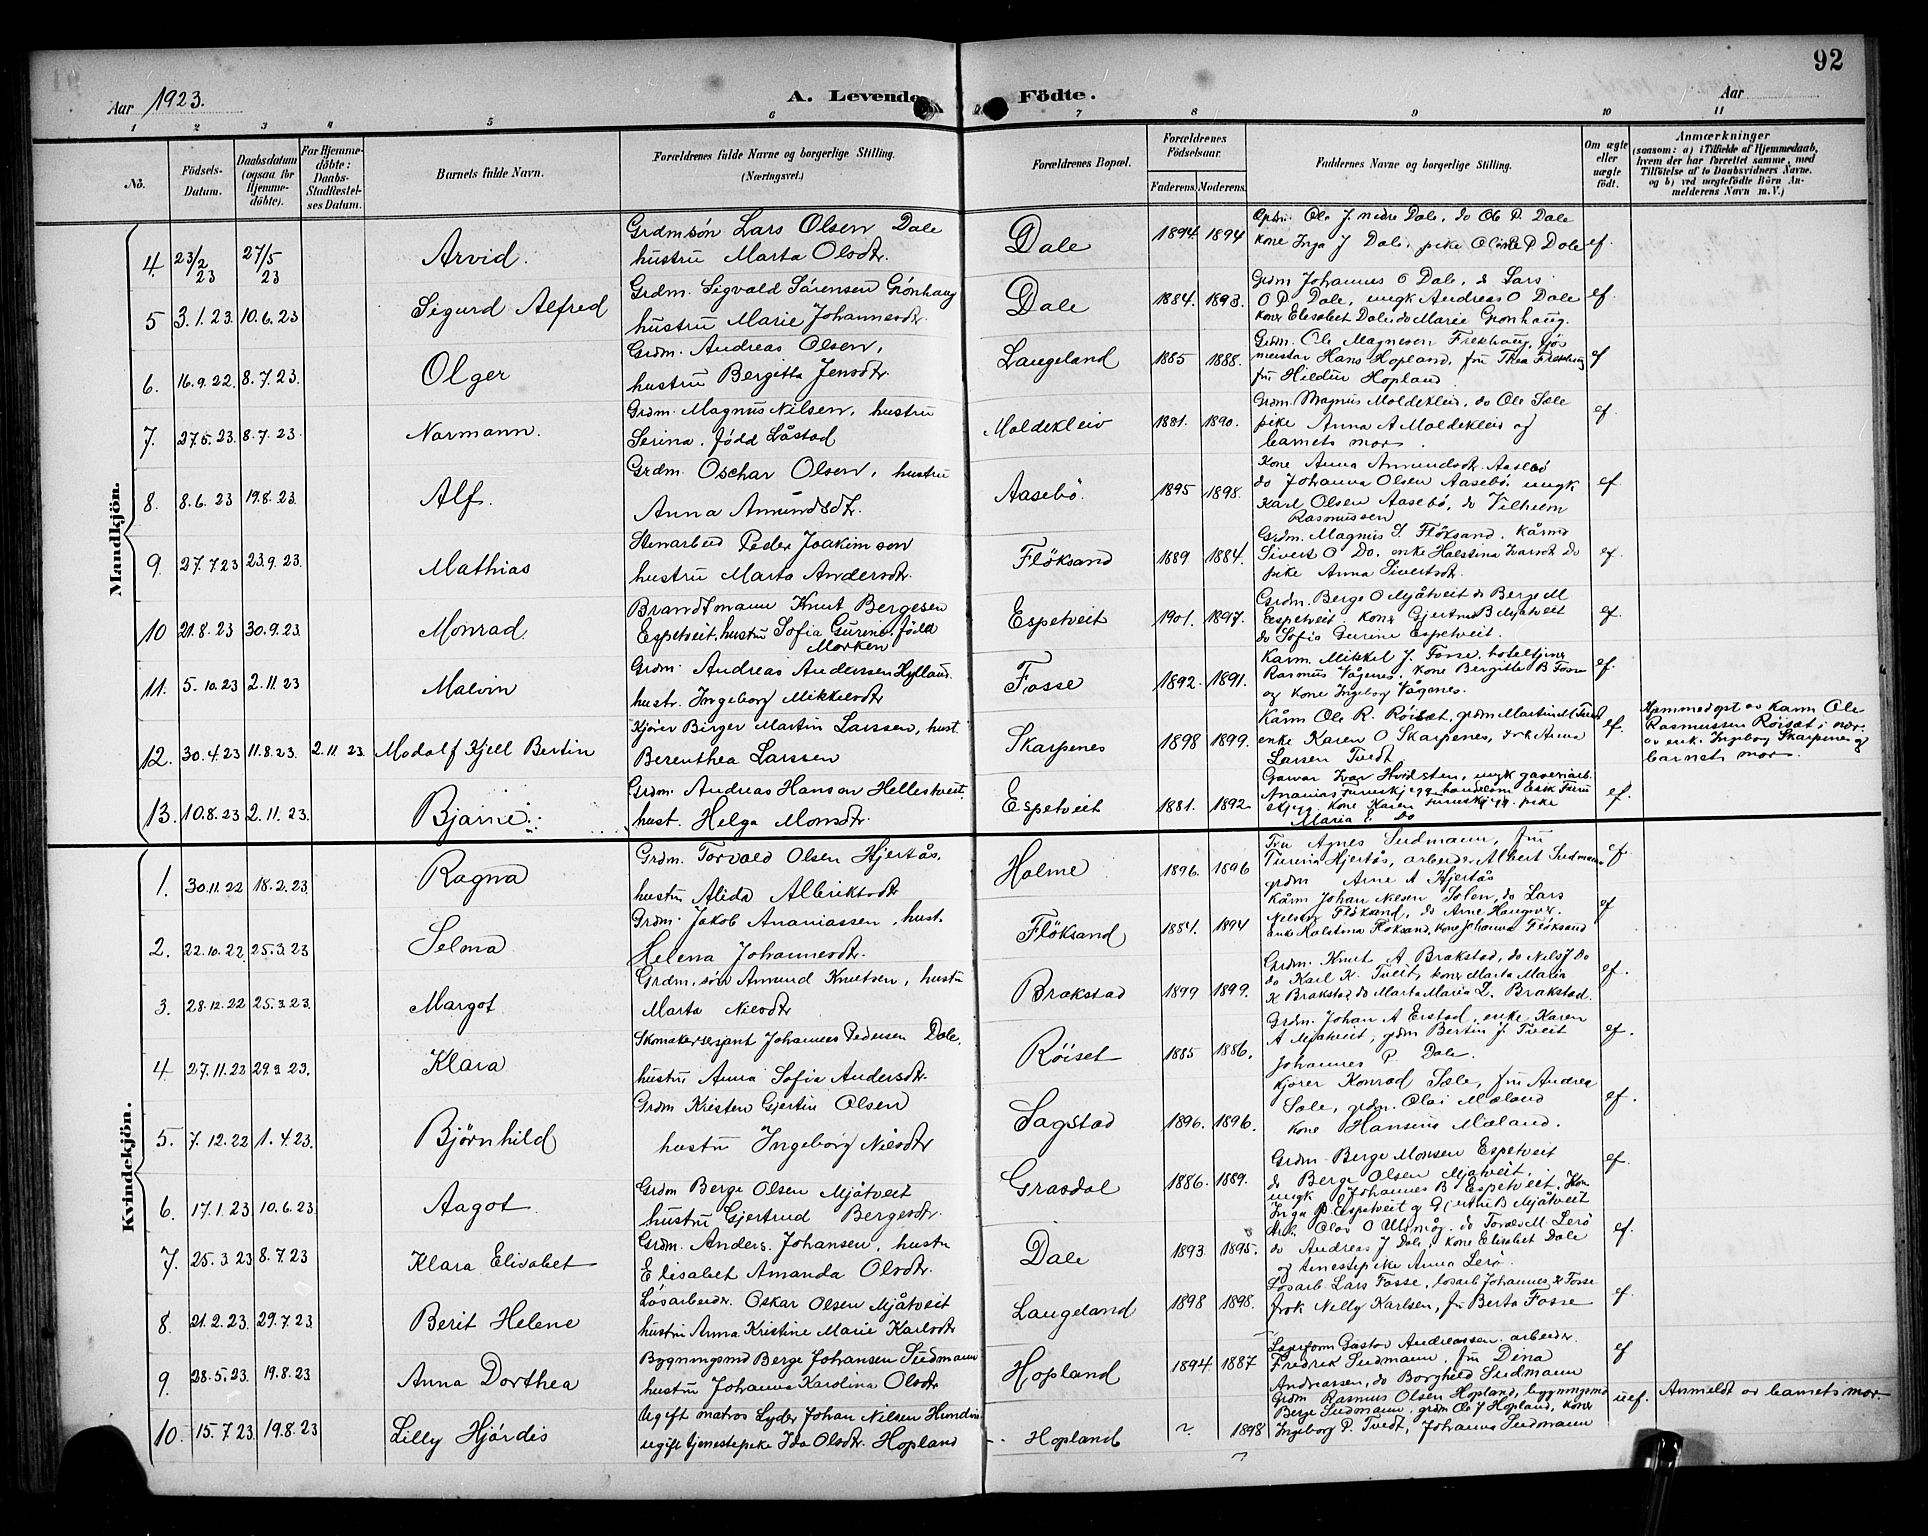 92
Aar 1923.
A. Levende Födte.
Aar
1 2 3 4 5 6 7 8 9 10 11
No.
Födsels-Datum.
Daabsdatum (ogsaa for Hjemme-döbte).
For Hjemme-döbte: Daabs-Stadfæstel-ses Datum.
Barnets fulde Navn.
Forældrenes fulde Navne og borgerlige Stilling. (Næringsvei.)
Forældrenes Bopæl.
Forældrenes Födselsaar.
Faderens. Moderens.
Faddernes Navne og borgerlige Stilling.
Om ægte eller uægte födt.
Anmærkninger
(saasom: a) i Tilfælde af Hjemmedaab, hvem der har forrettet samme, med Tilföielse af to Daabsvidners Navne, og b) ved uægtefödte Börn Anmelderens Navn m. V.)
Mandkjön.
4. 23/2 23 27/5 23 Arvid.
Grdmsön Lars Olsen Dale
hustru Marta Olsdtr.
Dale 1894 1894
Ole J. nedre Dale, do Ole P. Dale
kone Inga J Dale, pike Oline P Dale
ef.
5 3.1.23. 10.6.23 Sigurd Alfred
Grdm. Sigvald Sörensen Grönhaug
hustru Marie Johannesdtr.
Dale 1884. 1893.
Grdm Johannes O Dale, do Lars
O P. Dale, ungk Andreas O Dale
kone Elisabet Dale, do Marie Grönhaug.
ef.
6. 16.9.22. 8.7.23. Olger
Grdm. Andreas Olsen,
hustru Bergitta Jensdtr.
Langeland 1885 1888.
Grdm. Ole Magnesen Frekhaug,
Hans Hopland, fru Thea Frekhaug
fru Hildur Hopland
ef
7. 27.5.23. 8.7.23. Normann.
Grdm. Magnus Nilsen, hustru
Serina, född Låstad
Moldekleiv 1881. 1890.
Grdm. Magnus Moldekleiv, do Ole Sæle
pike Anna A Moldekleiv og
barnets mor.
ef.
8. 8.6.23 19.8.23. Alf.
Grdm. Oschar Olsen, hustru
Anna Amundsdtr.
Aasebö. 1895 1898.
Kone Anna Amundsdtr. Aasebö
do Johanna Olsen Aasebö, ungk
Karl Olsen Aasebö, do Vilhelm
Rasmussen
ef.
9. 27.7.23 23.9.23. Mathias
Stenarbeid Peder Joakimson
hustru Marta Andersdtr.
Flöksand 1889 1884.
Grdm. Magnus S. Flöksand. Kårmd
Sivert O Do. enke Halstina Do
pike Anna Sivertsdtr.
ef.
10 21.8.23 30.9.23 Monrad.
Brandtmann Knut Bergesen
Espetveit, hustru Sofia Gurine, född
Morken
Espetveit 1901. 1897.
Grdm. Berge O Mjåtveit do Berge M
Espetveit. kone Gjertrud B Mjåtveit
do Sofia Gurine Espetveit.
ef.
11. 5.10.23 2.11.23 Malvin
Grdm. Andreas Anderssen Hylland.
hustr. Ingeborg Mikkelsdtr
Fosse 1892. 1891.
Kårm. Mikkel J. Fosse,
Rasmus Vågenes, kone Bergitte B Fosse
og kone Ingeborg Vågenes.
ef.
12. 30.4.23 11.8.23. 2.11.23. Modolf Kjell Bertin
Kjörer Birger Martin Larssen, hust.
Berenthea Larssen
Skarpenes 1898 1899.
Kårm Ole R. Röiset, grdm Martin M Tvedt
enke Karen O Skarpenes, frk Anna
Larsen Tvedt
ef.
Hjemmedöpt av kårm Ole
Rasmussen Röiset i nærv.
av enk. Ingeborg Skarpenes og
barnets mor.
13. 10.8.23 2.11.23 Bjarne.
Grdm. Andreas Hanson Hellestveit.
hust. Helga Monsdtr.
Espetveit 1881. 1892
Garver Ivar Hvidsten, ungk garveriarb.
Ananias Furuskjegg, Erik Furu
skjegg, kone Karen Furuskjegg, pike
Maria Do
ef.
Kvindekjön.
1. 30.11.22 18.2.23 Ragna
Grdm. Torvald Olsen Hjertås,
hustru Alida Albriktsdtr
Holme 1896. 1896
Fru Agnes Sudmann, fru
Hjertås, arbeider Albert Sudmann
grdm Arne A Hjertås
ef.
2. 22.10.22. 25.3.23 Selma
Grdm. Jakob Ananiassen, hust.
Helena Johannesdtr.
Flöksand 1884. 1894
Kårm Johan Nilsen Solem, do Lars
Nilsen Flöksand, do Arne Haugsvær.
Enke Halstina Flöksand, kone Johanna Flöksand
ef
3. 28.12.22 25.3.23. Margot.
Grdm, sön Amund Knutsen, hustru
Marta Nilsdtr
Brakstad 1899 1899.
Grdm. Knut A Brakstad, do Nils J Do
do Karl K. Tveit, kone Marta Maria
K Brakstad do Marta Maria L. Brakstad.
ef.
4. 27.11.22 29.3.23. Klara
Skomakersersjant Johannes Pedersen Dale.
hustru Anna Sofia Andersdtr.
Röiset 1885 1886.
Grdm. Johan A Eistad, enke Karen
A Mjåtveit, grdm Bertin J. Tveit
Johannes P. Dale.
ef.
5. 7.12.22 1.4.23. Björnhild
Grdm Kristen Gjertin Olsen
hustru Ingeborg Nilsdtr
Sagstad 1896. 1896.
Kjörer Konrad Sæle, fru Andrea
Sæle, grdm. Olai Mæland
kone Hansina Mæland.
ef.
6. 17.1.23 10.6.23 Aagot.
Grdm Berge Olsen Mjåtveit
hustru Gjertrud Bergesdtr.
Grasdal 1886. 1889.
Grdm. Berge Monsen Espetveit
do Berge Olsen Mjåtveit.
ungk Johannes B Espetveit, Kone
Inga P Espetveit og Gjertrud B Mjåtveit
ef.
7. 25.3.23 8.7.23 Klara Elisabet
Grdm. Anders. Johansen, hustru
Elisabet Amanda Olsdtr.
Dale 1893 1895.
Arb. Olai O Urdnög, do Torvald M. Lerö
do Andreas J Dale, kone Elisabet Dale
og tjenestepike Anna Lerö.
ef.
8. 21.2.23. 29.7.23 Berit Helene
Lösarbeidr. Oskar Olsen Mjåtveit
hustru Anna Kristine Marie Karlsdtr
Langeland 1898 1898.
Lösarb. Lars Fosse, lösarb. Johannes K Fosse
frök Nelly Karlsen, fr Berta Fosse
ef.
9. 28.5.23. 19.8.23 Anna Dorthea
Bygningsmd Berge Johansen Sudmann
hustru Johanna Karolina Olsdtr
Hopland 1894. 1887
Gustav Andreassen. arbeidr.
Fredrik Sudmann, fru Dina
Andreassen, do Borghild Sudmann
ef
10. 15.7.23. 19.8.23 Lilly Hjördis
Ugift matros Lyder Johan Nilsen
ugift tjenestepike Ida Olsdtr. Hopland
Hopland ? 1898
Grdm Rasmus Olsen Hopland, byggningsmd
Berge Sudmann, grdm Ole J Hopland, kone
Ingeborg P. Tvedt, Johanna Sudmann
uef.
Anmeldt av barnets mor
?